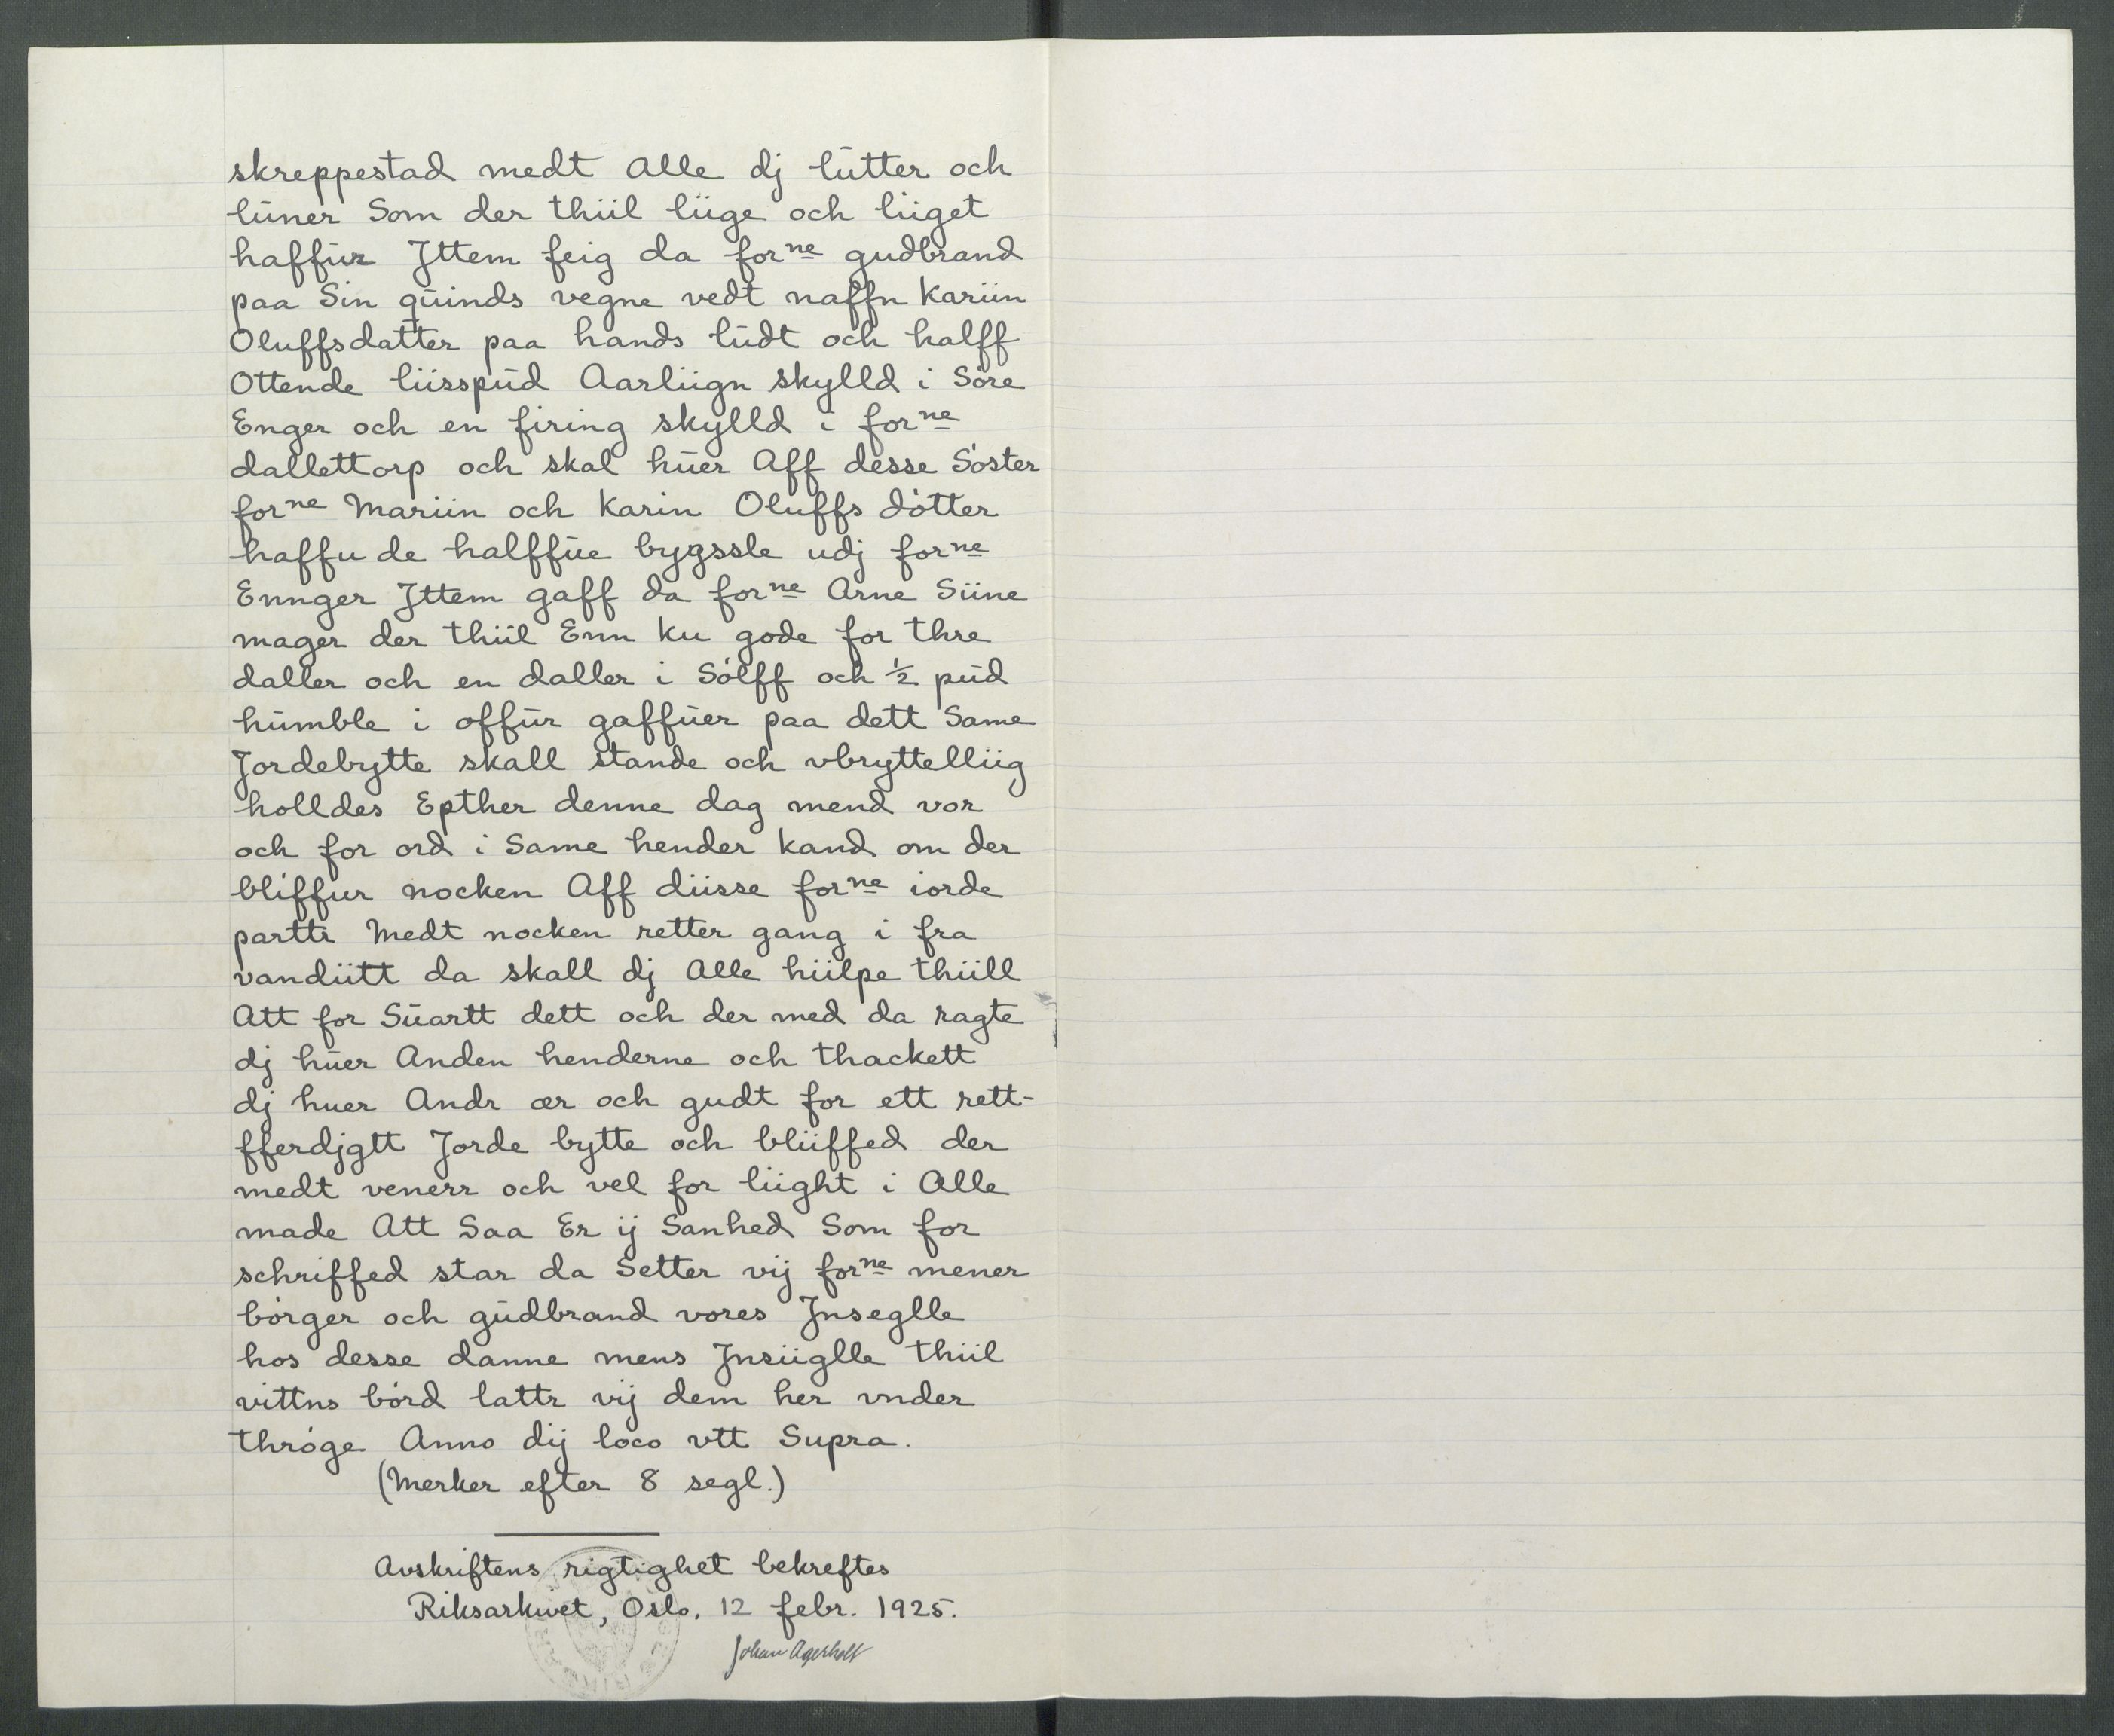 skreppestad medt Alle dj lùtter och
lùner Som der thiil liige och liiget
haffùr Jttem feig da forne gudbrand
paa Sin qùinds vegne vedt naffn Kariin
Oluffsdatter paa hands lùdt och halff
Ottende liisspùd Aarliign skylld i Sóre
Enger och en firing skylld i forne
dallettorp och skal hùer Aff desse Sóster
forne Mariin och Karin Oluffs dótter
haffu de halffùe bygssle udj forne
Ennger Jttem gaff da forne Arne Siine
mager der thiil Enn ku gode for thre
daller och en daller i Sólff och ½ pùd
hùmble i offùr gaffùer paa dett Same
Jordebytte skall stande och vbryttelliig
holldes Epther denne dag mend vor
och for ord i Same hender kand om der
bliffur nocken Aff diisse forne iorde
partte Medt nocken retter gang i fra
vandiitt da skall dj Alle hiilpe thiill
Att for Sùartt dett och der med da ragte
dj hùer Anden henderne och thackett
dj huer Andr ær och gudt for ett rett-
fferdjgtt Jorde bytte och bliiffed der
medt venerr och vel for liight i Alle
made Att Saa Er ij Sanhed Som for
schriffed star da Setter vij forne mener
bórger och gùdbrand vores Jnseglle
hos desse danne mens Jnsiiglle thiil
vittns bórd lattr vij dem her vnder
thróge Anno dij loco vtt Supra.
(Merker efter 8 segl.)
Avskriftens rigtighet bekreftes
Riksarkivet, Oslo, 12 febr. 1925.
Johan Agerholt